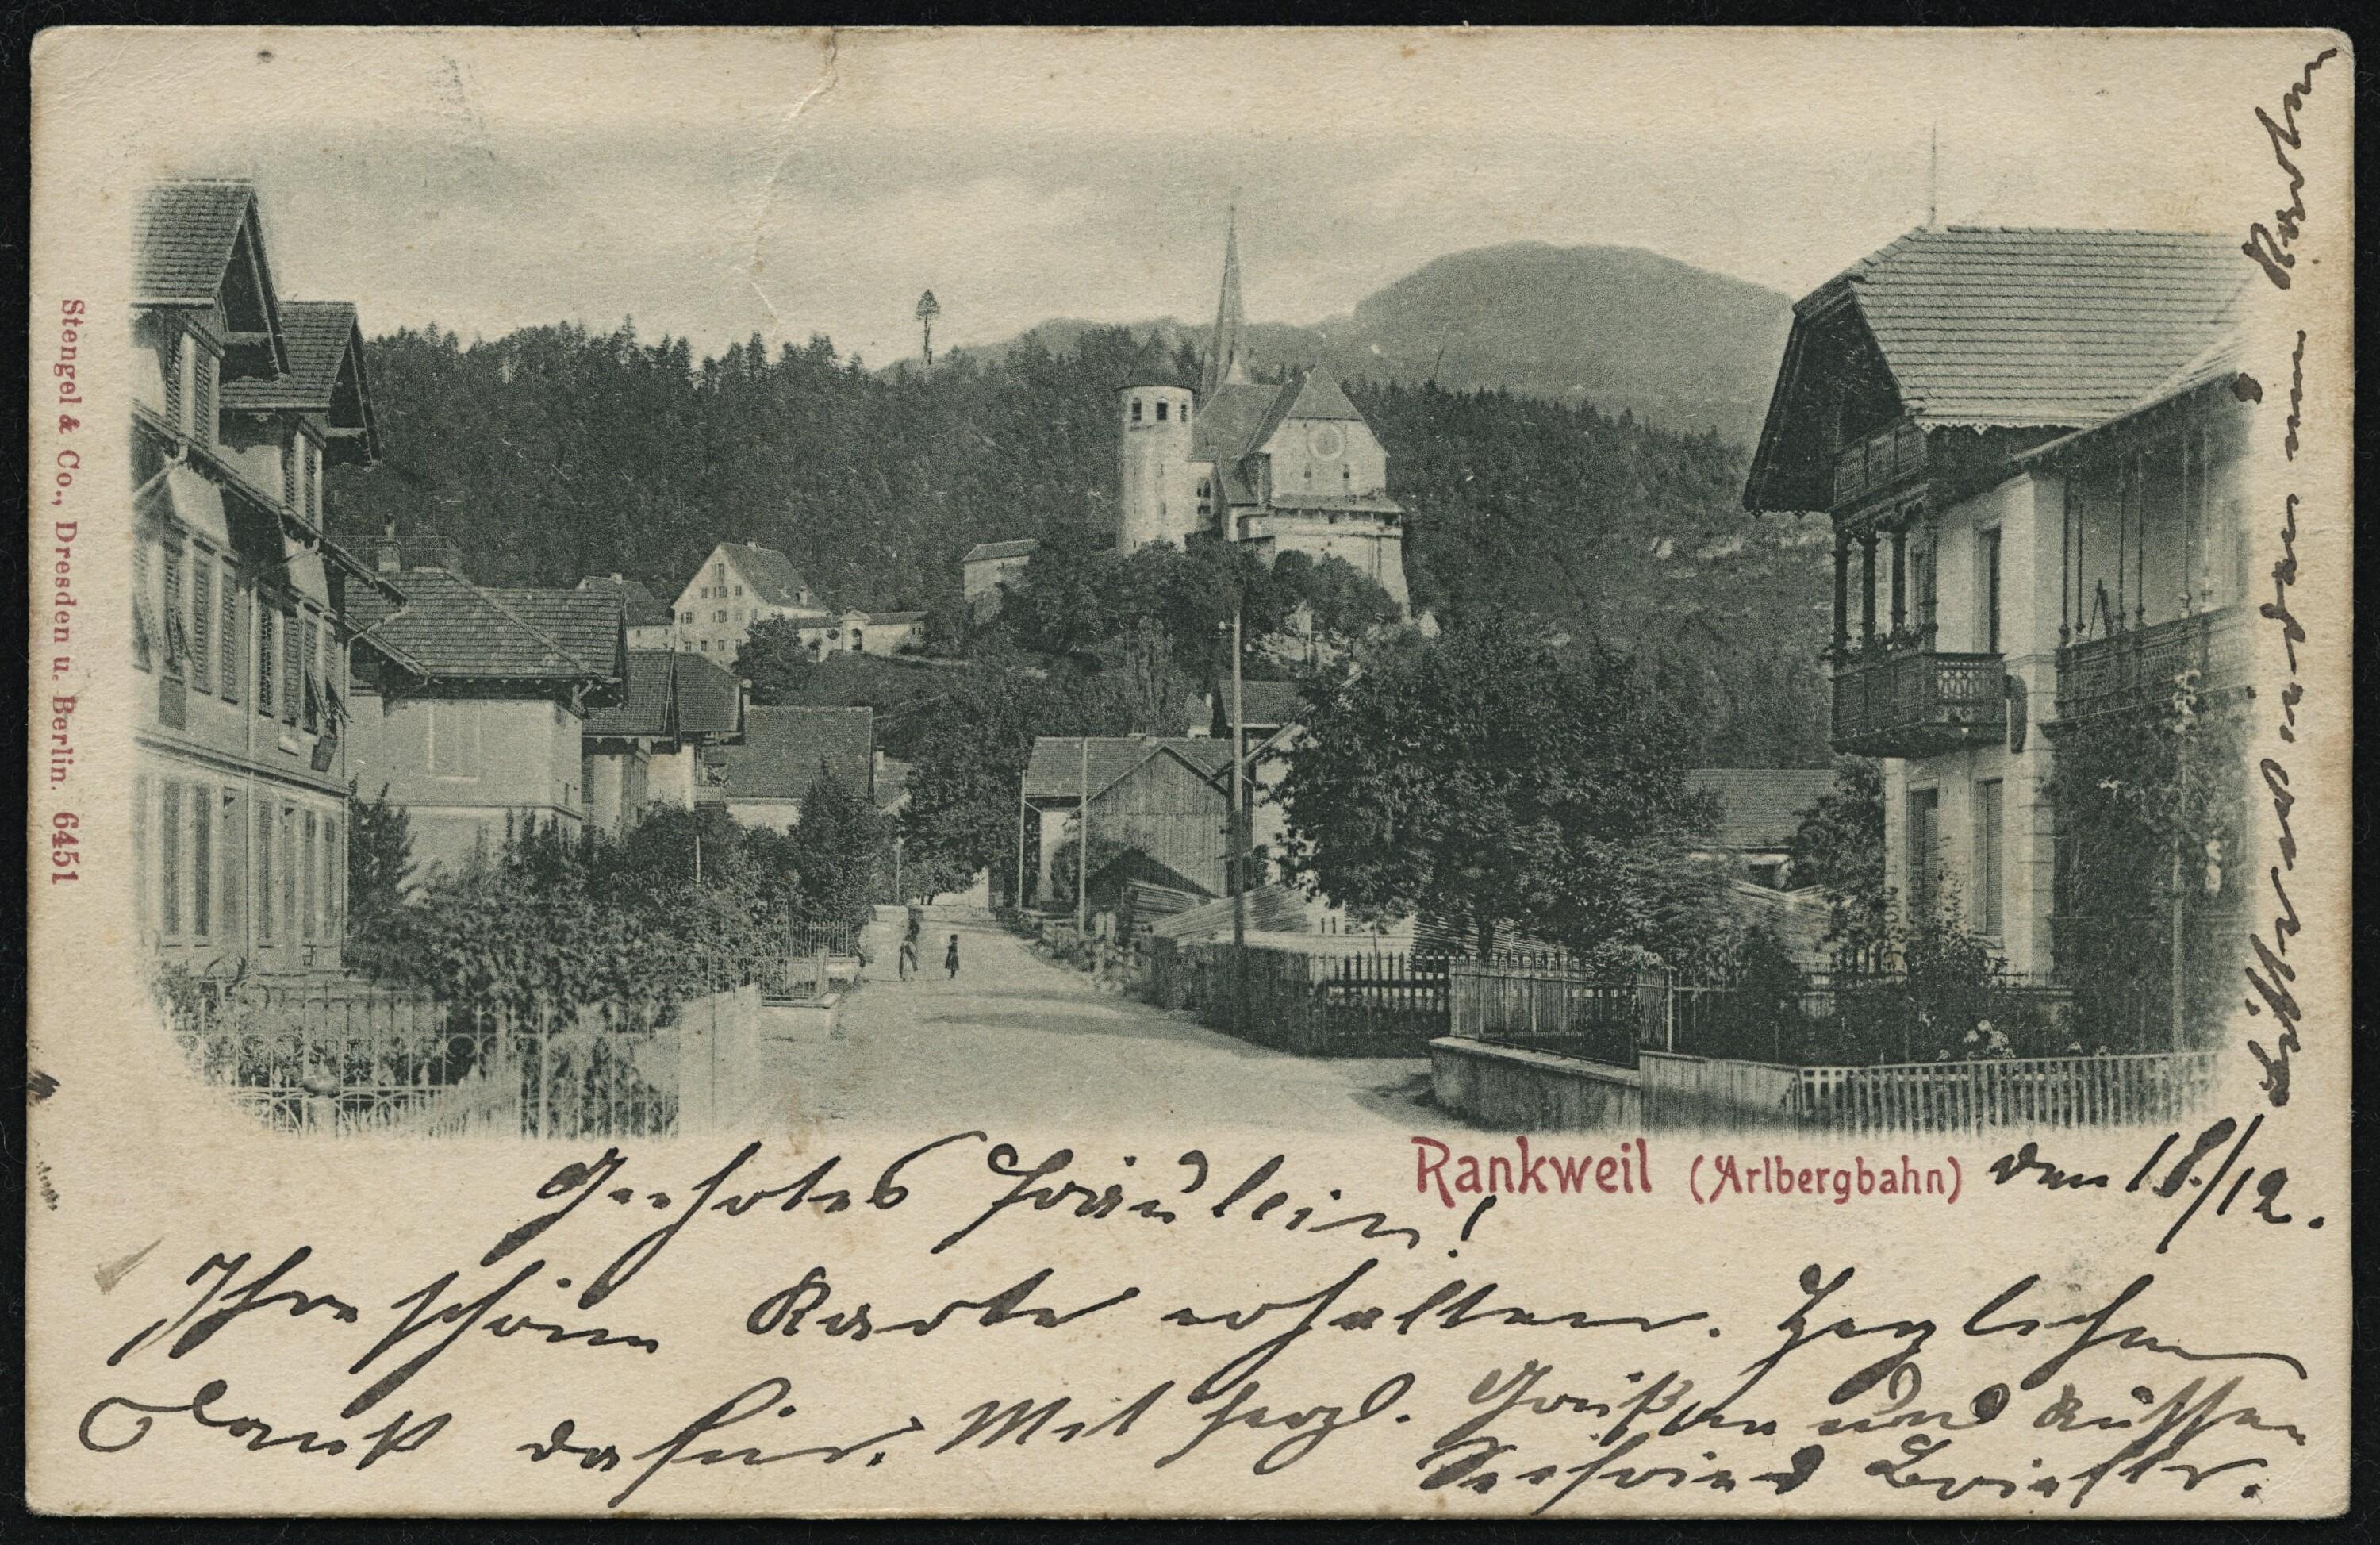 Stengel & Co., Dresden u. Berlin. 6451
Rankweil (Arlbergbahn) den 18./12.
Geehrtes Fräulein!
Ihre schöne Karte erhalten. Herzlichen
Dank dafür. Mit herzl. Grüßen und Küssen
Seefried Brieftr.
Bitte um eine Karte